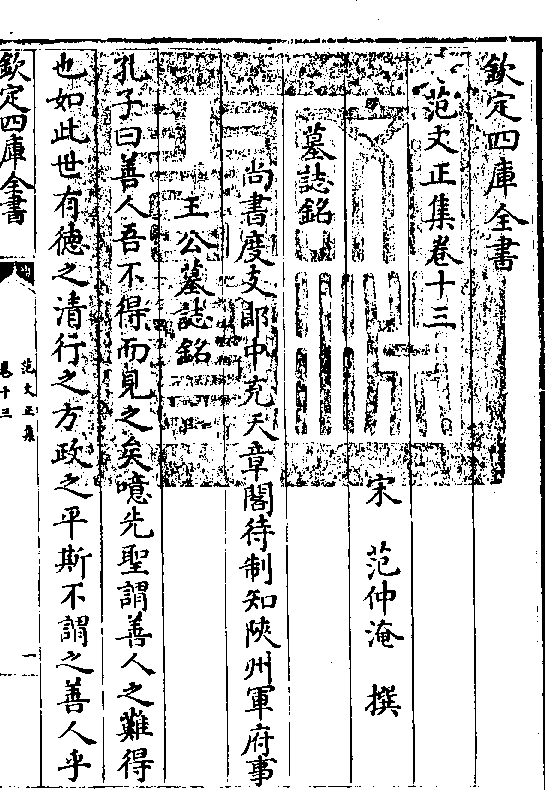 欽定四庫全書
范文正集卷十三
宋 范仲淹 撰
墓誌銘
尚書度支郎中充天章閣待制知陝州軍府事
王公墓誌銘
孔子曰善人吾不得而見之矣噫先聖謂善人之難得
也如此世有德之清行之方政之平斯不謂之善人乎
欽定四庫全書
范文正集
卷十三
一